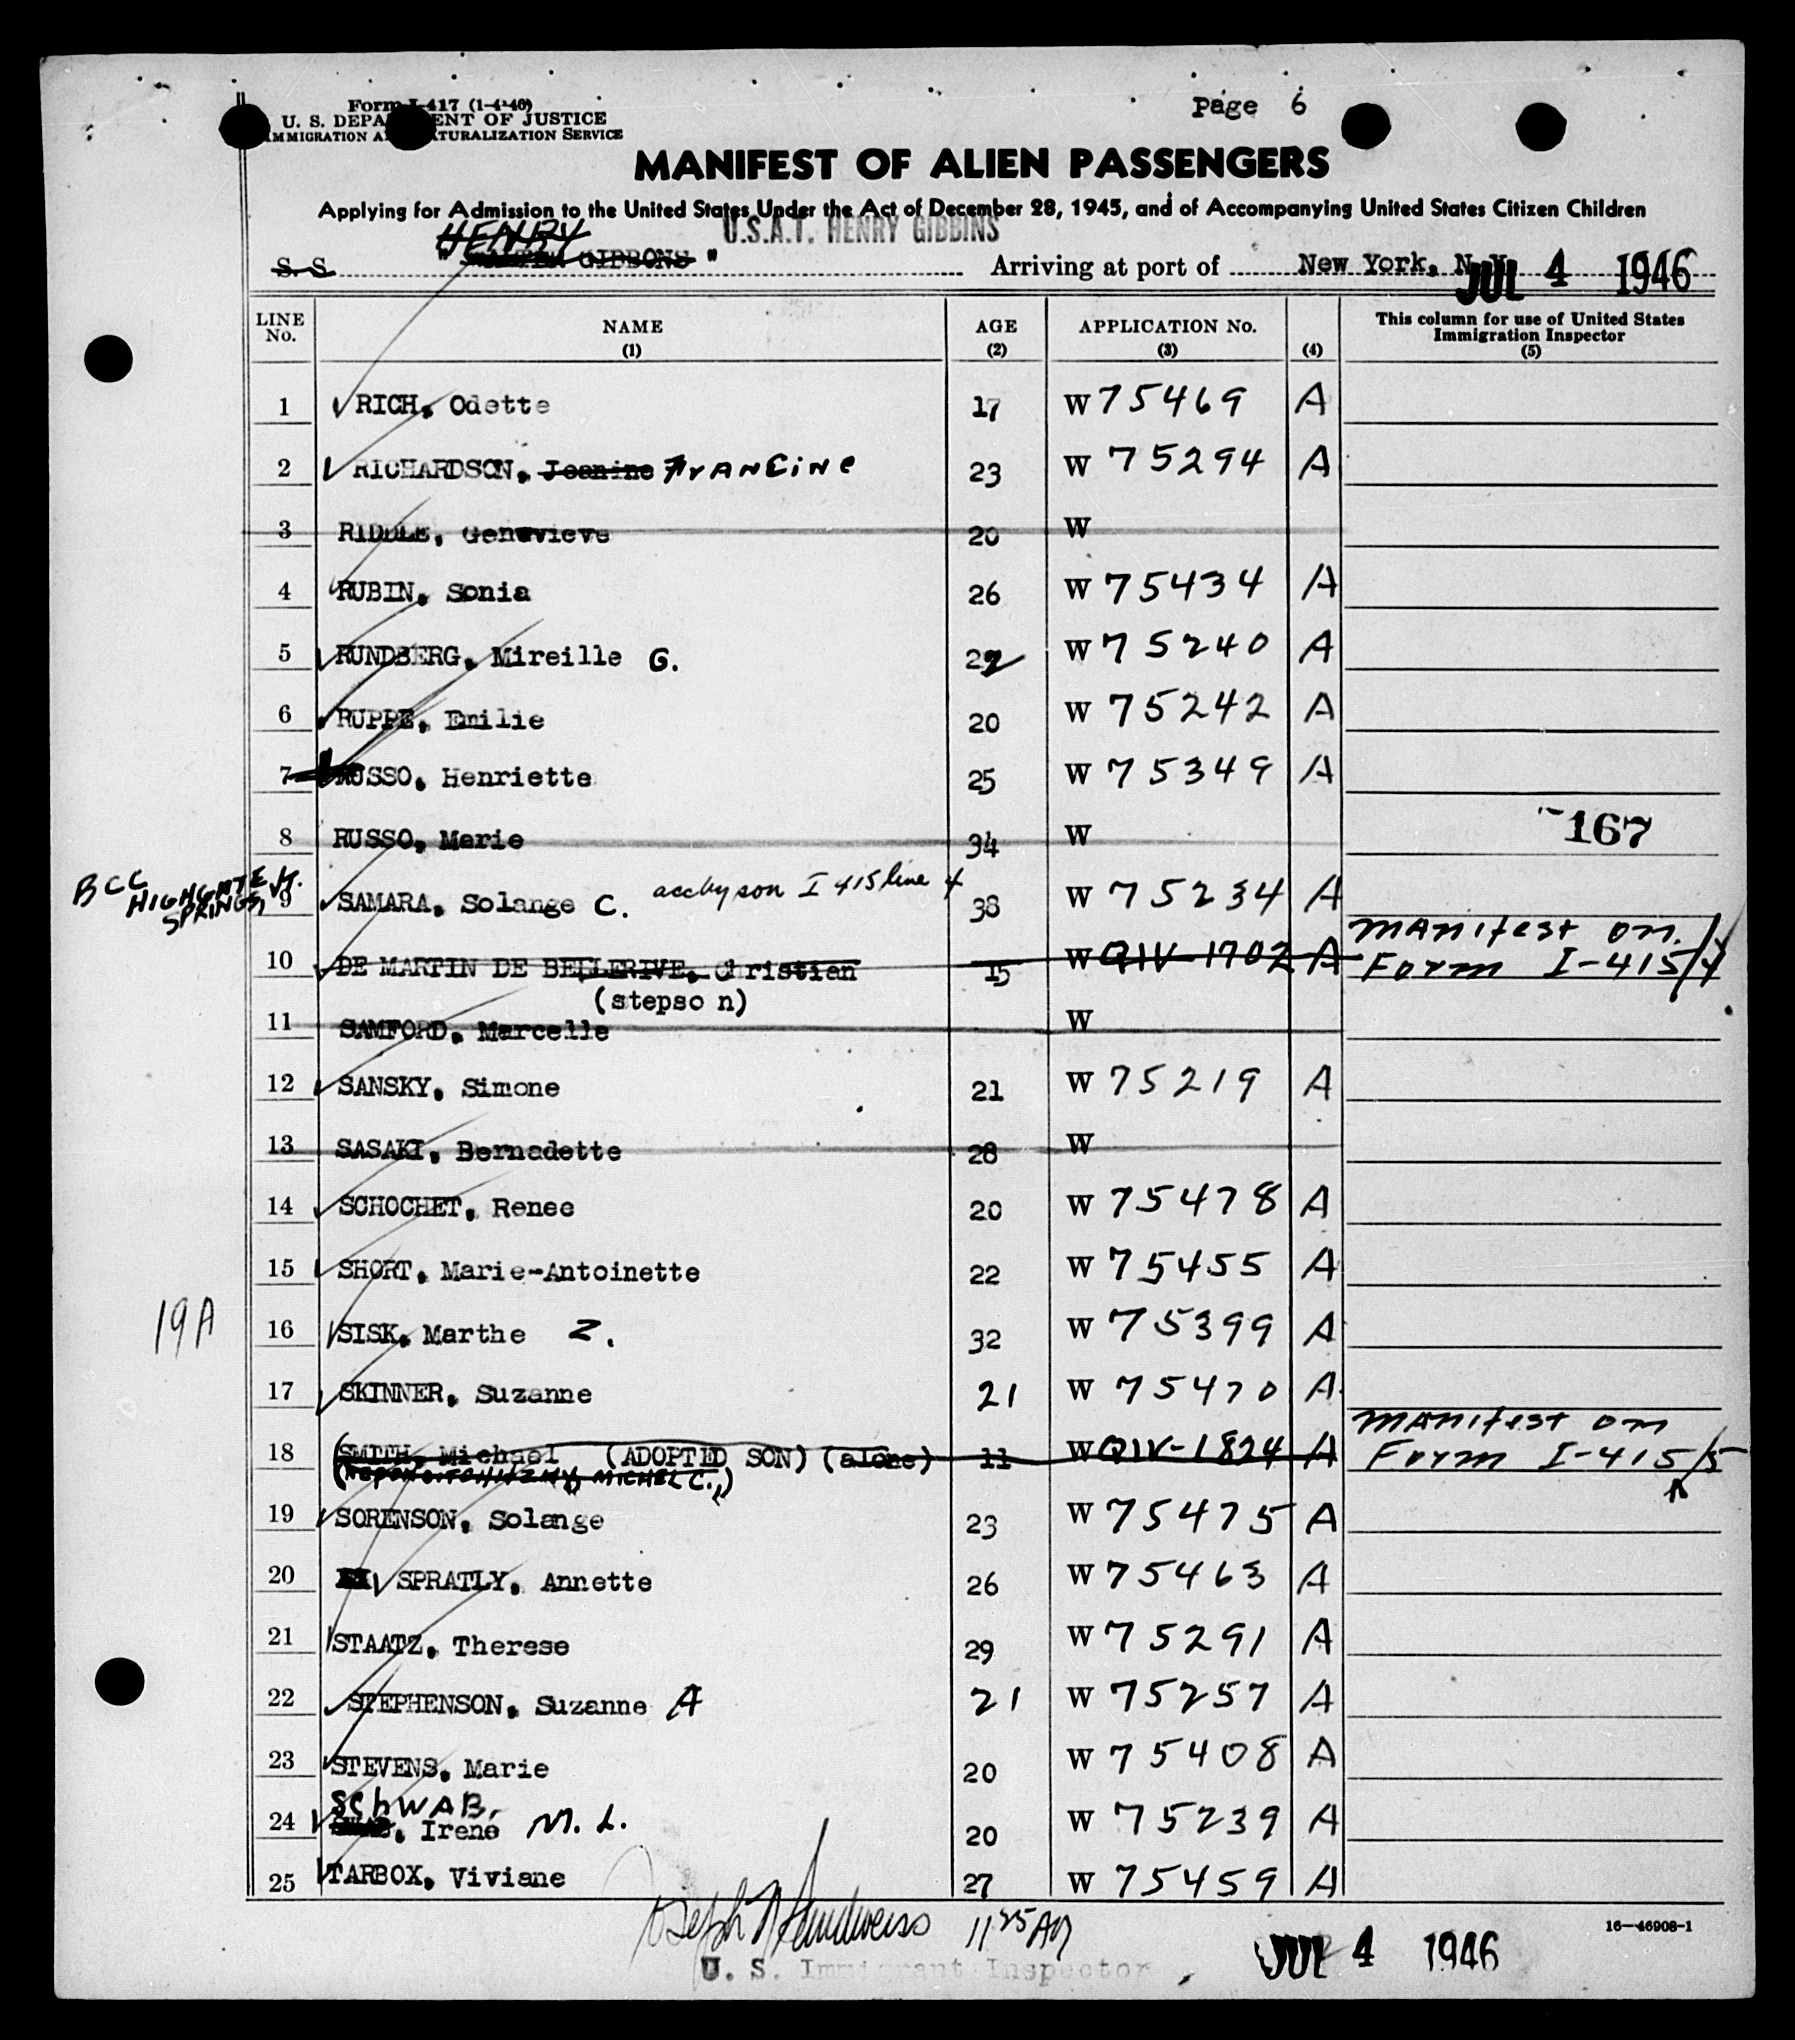 Form I-417 (1-4-46)
page 6
U. S. DEPA ENT OF JUSTICE
IMMIGRATION A TURALIZATION SERVICE
MANIFEST OF ALIEN PASSENGERS
Applying for Admission to the United States Under the Act of December 28, 1945, and of Accompanying United States Citizen Children
U.S.A.T. HENRY GIBBINS
HENRY
S. S. " GIBBONS " Arriving at port of New York, N.Y. JUL 4 1946
LINE No. NAME (1) AGE (2) APPLICATION No. (3) (4) This column for use of United States Immigration Inspector (5)
1 RICH, Odette 17 W 75469 A
2 RICHARDSON, Jeanine FrANCiNe 23 W 75294 A
3 RIDDLE, Genevieve 20 W
4 RUBIN, Sonia 26 W 75434 A
5 RUNDBERG, Mireille G. 22 W 75240 A
6 RUPPE, Emilie 20 W 75242 A
7 RUSSO, Henriette 25 W 75349 A
8 RUSSO, Marie 34 W 167
BCC HIGHGATE SPRINGS, Vt.
9 SAMARA, Solange C. acc by son I 415 line 4 38 W 75234 A
10 DE MARTIN DE BELLERIVE, Christian 15 W QIV-1702 A MANifest on Form I-415/4
(stepso n)
11 SAMFORD, Marcelle W
12 SANSKY, Simone 21 W 75219 A
13 SASAKI, Bernadette 28 W
14 SCHOCHET, Renee 20 W 75478 A
15 SHORT, Marie-Antoinette 22 W 75455 A
19A
16 SISK, Marthe Z. 32 W 75399 A
17 SKINNER, Suzanne 21 W 75470 A
18 SMITH, Michael (ADOPTED SON) (alone) 11 W QIV-1824 A MANifest on Form I-415/5
MICHEL C.,)
19 SORENSON, Solange 23 W 75475 A
20 SPRATLY, Annette 26 W 75463 A
21 STAATZ, Therese 29 W 75291 A
22 STEPHENSON, Suzanne A 21 W 75257 A
23 STEVENS, Marie 20 W 75408 A
SchWAB,
24 , Irene M. L. 20 W 75239 A
25 TARBOX, Viviane 27 W 75459 A
16—46908-1
Joseph 11 25 AM
U. S. Immigrant Inspector JUL 4 1946